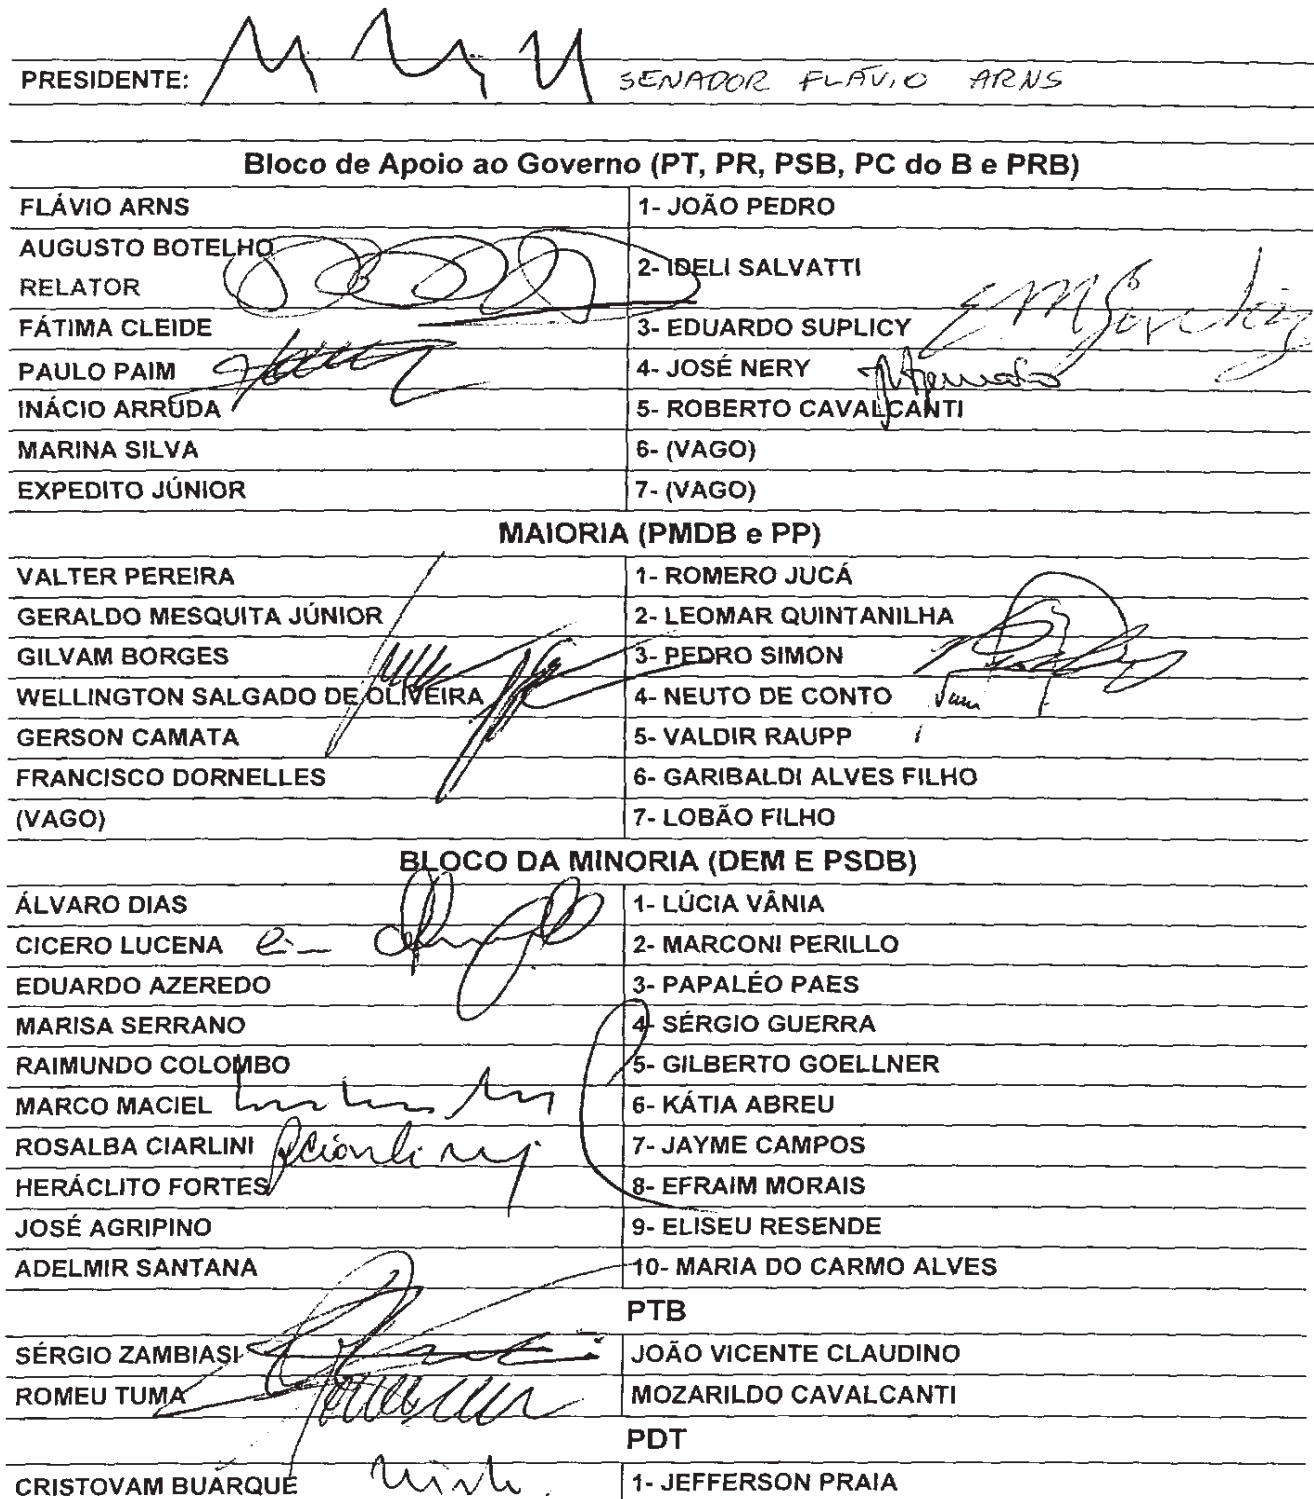 PRESIDENTE: SENADOR FLÁVIO ARNS
Bloco de Apoio ao Governo (PT, PR, PSB, PC do B e PRB)
FLÁVIO ARNS 1- JOÃO PEDRO
AUGUSTO BOTELHO
RELATOR 2- IDELI SALVATTI
FÁTIMA CLEIDE 3- EDUARDO SUPLICY
PAULO PAIM 4- JOSÉ NERY
INÁCIO ARRUDA 5- ROBERTO CAVALCANTI
MARINA SILVA 6- (VAGO)
EXPEDITO JÚNIOR 7- (VAGO)
MAIORIA (PMDB e PP)
VALTER PEREIRA 1- ROMERO JUCÁ
GERALDO MESQUITA JÚNIOR 2- LEOMAR QUINTANILHA
GILVAM BORGES 3- PEDRO SIMON
WELLINGTON SALGADO DE OLIVEIRA 4- NEUTO DE CONTO
GERSON CAMATA 5- VALDIR RAUPP
FRANCISCO DORNELLES 6- GARIBALDI ALVES FILHO
(VAGO) 7- LOBÃO FILHO
BLOCO DA MINORIA (DEM E PSDB)
ÁLVARO DIAS 1- LÚCIA VÂNIA
CICERO LUCENA 2- MARCONI PERILLO
EDUARDO AZEREDO 3- PAPALÉO PAES
MARISA SERRANO 4- SÉRGIO GUERRA
RAIMUNDO COLOMBO 5- GILBERTO GOELLNER
MARCO MACIEL 6- KÁTIA ABREU
ROSALBA CIARLINI 7- JAYME CAMPOS
HERÁCLITO FORTES 8- EFRAIM MORAIS
JOSÉ AGRIPINO 9- ELISEU RESENDE
ADELMIR SANTANA 10- MARIA DO CARMO ALVES
PTB
SÉRGIO ZAMBIASI JOÃO VICENTE CLAUDINO
ROMEU TUMA MOZARILDO CAVALCANTI
PDT
CRISTOVAM BUARQUE 1- JEFFERSON PRAIA